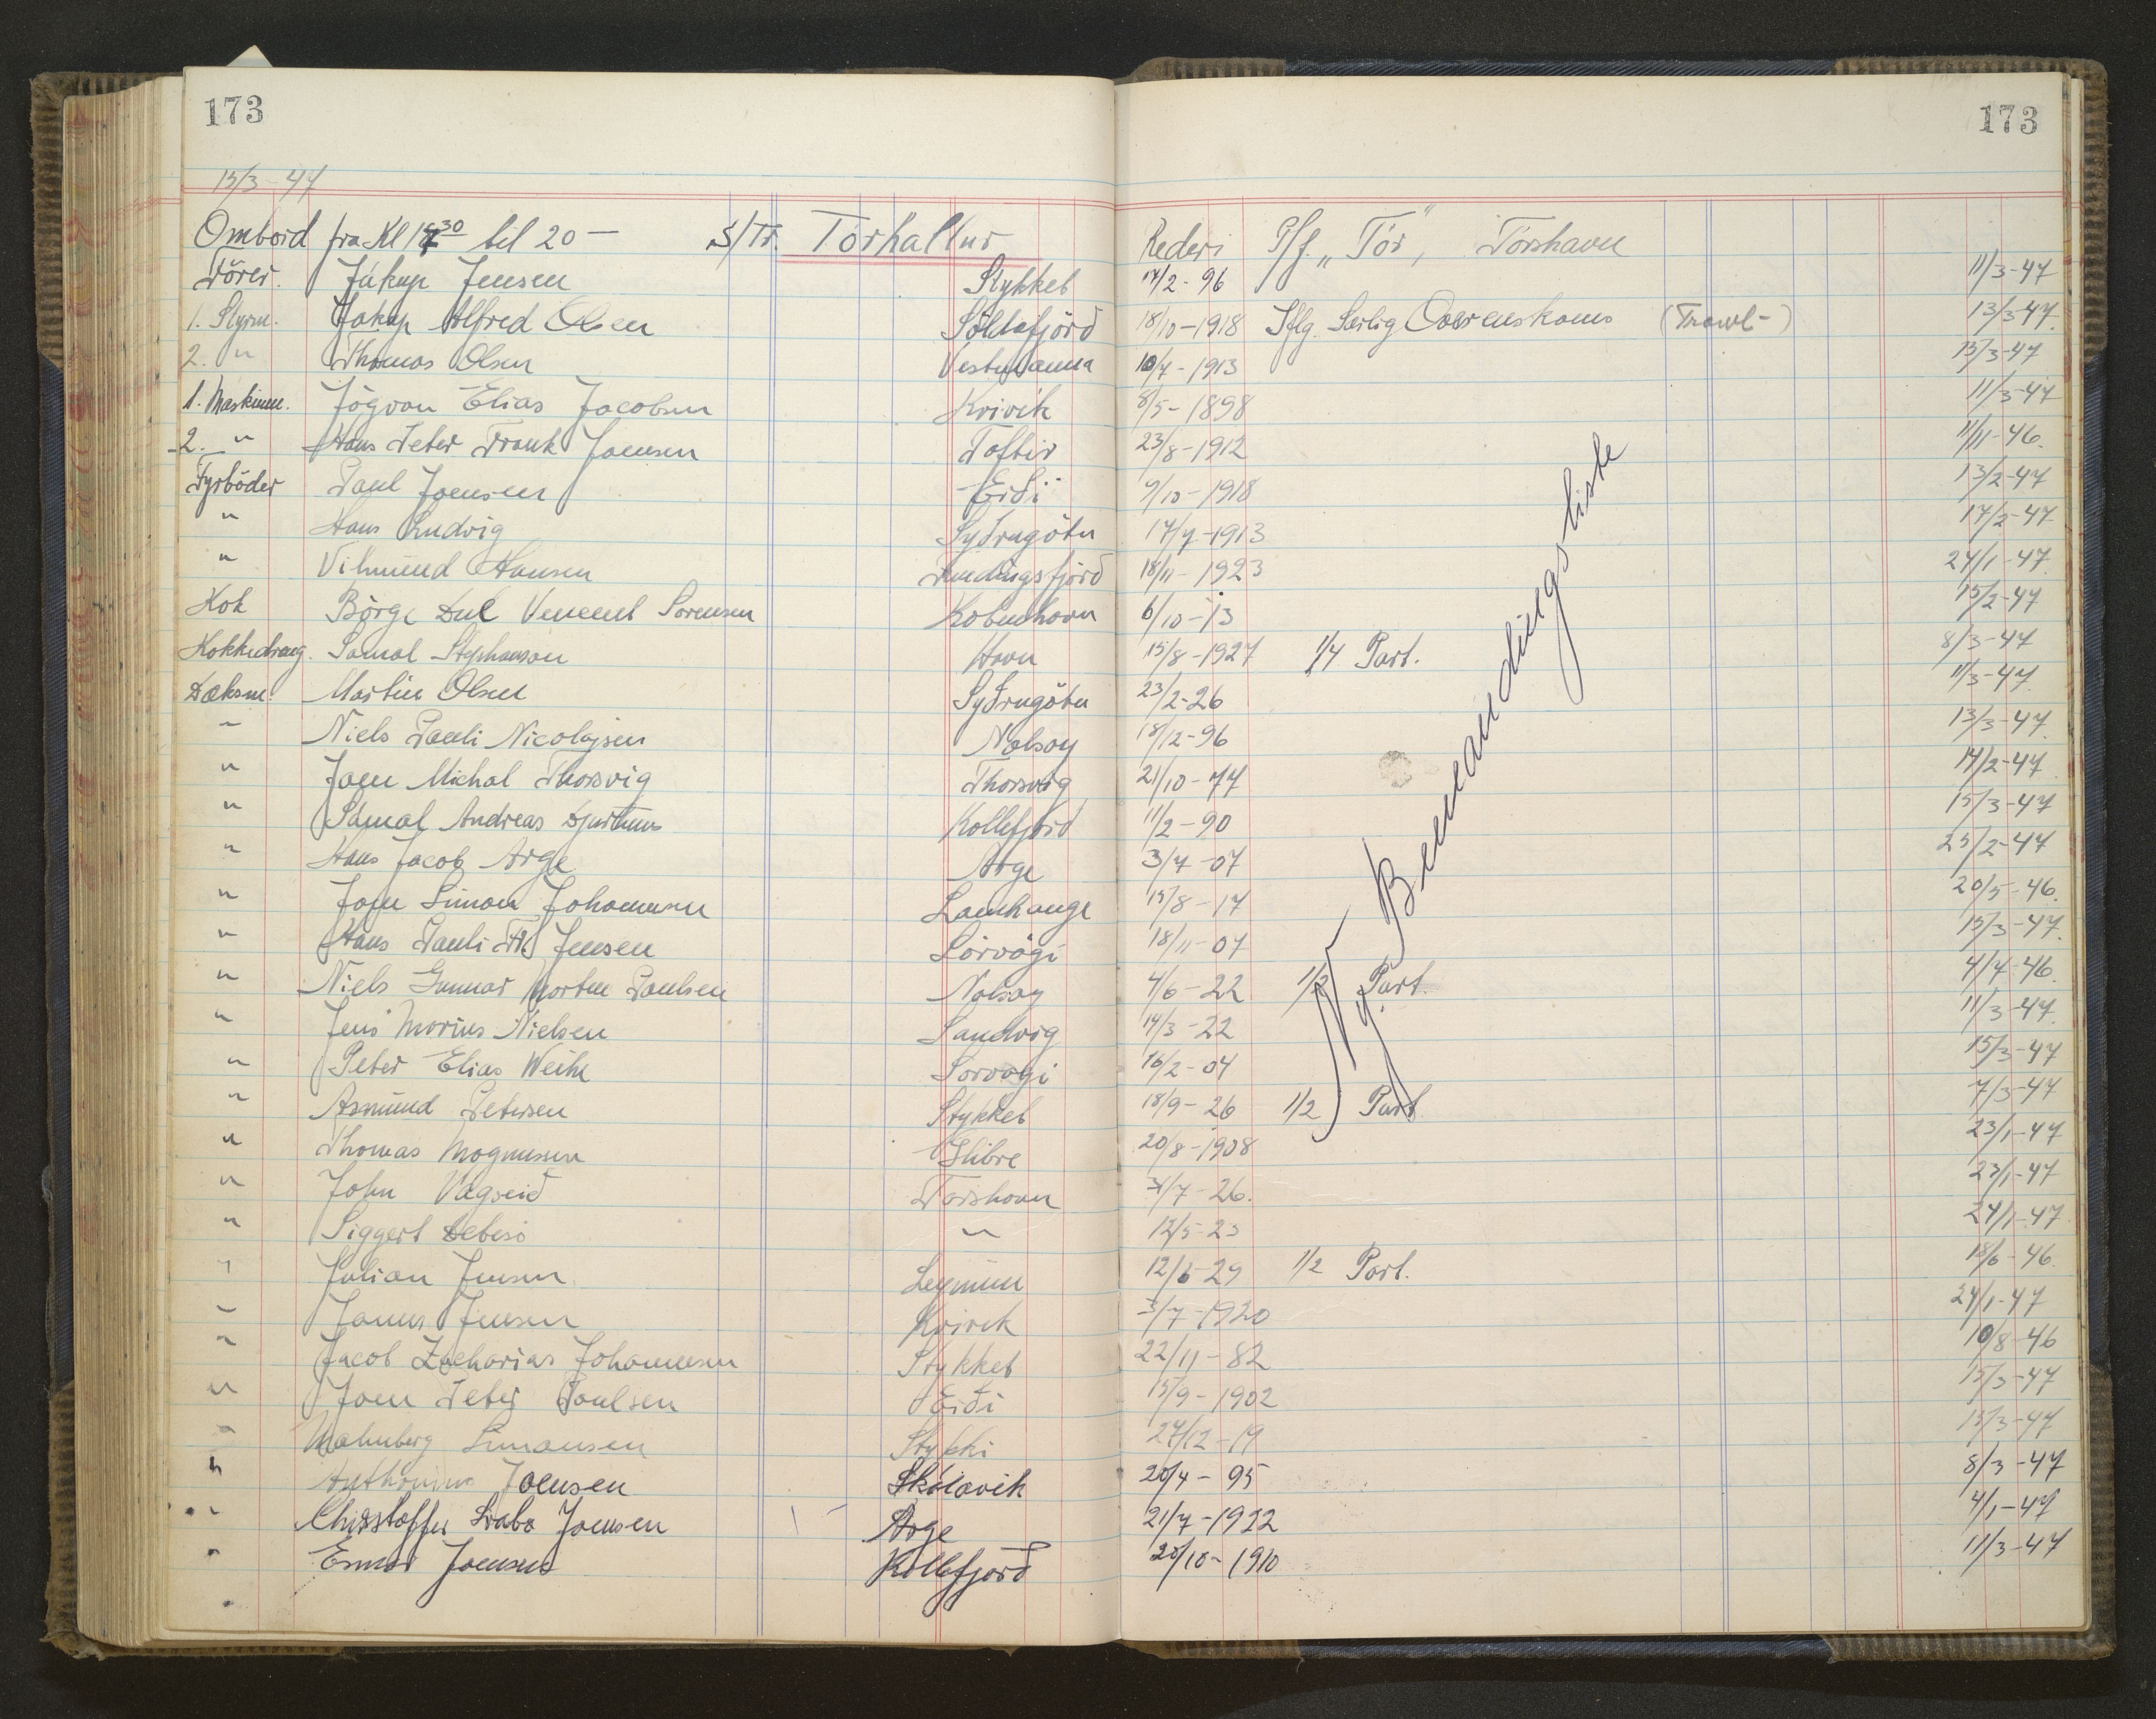 173 173
15/3-47
Ombord fra Kl 30 til 20— S/Tr. Tórhallur Rederi P/f. „Tór", Tórshavn
Förer. Jákup Jensen Stykket 17/2-96 11/3-47
1. Styrm. Jákup Alfred Olsen 18/10-1918 Iflg. Særlig Overenskoms (Trawl-) 13/3-47
2. " Thomas Olsen Vestmanna 10/7-1913 15/3-47
1. Maskinm. Jógvan Elias Jacobsen Kvivik 8/5-1898 11/3-47
2. " Hans Peter Frank Joensen Toftir 23/8-1912 1/11-46.
Fyrböder Paul Joensen Eidi 9/10-1918 13/2-47
" Hans Ludvig Sydrugötu 17/7-1913 17/2-47
" Vilmund Hansen Fundingsfjörd 18/11-1923 24/1-47.
Kok Börge Sorensen Kobenhavn 6/10-13 15/2-47
Kokkedreng. Samal Stephanson Havn 15/8-1927 1/4 Part. 8/3-47
Dæksm. Martin Olsen Sydrugötu 23/2-26 11/3-47.
" Niels Pauli Nicolajsen Nolsoy 18/12-96 13/3-47.
" Joen Michal Thorsvig Thorsvig 21/10-74 14/2-47
" Samal Andreas Djurhuus Kollefjord 11/2-90 15/3-47
" Hans Jacob Arge Arge 3/7-07 25/2-47
" Joen Simon Johannesen Lamhauge 15/8-17 20/5-46.
" Hans Pauli Fr. Jensen Sörvági 18/11-07 15/3-47.
" Niels Gunnar Morten Poulsen Nolsoy 4/6-22 1/2 Part. 4/4-46.
" Jens Marius Nielsen Sandvig 14/3-22 11/3-47.
" Peter Elias Weihe Sorvagi 16/2-04 15/3-47
" Asmund Petersen Stykket 18/9-26 1/2 Part 7/3-47
" Thomas Magnussen Glibre 20/8-1908 23/1-47
" John Vagseid Torshavn 3/7-26. 23/1-47
" Siggert Debess " 12/5-23 24/1-47
" Julian Jensen Leynum 12/6-29 1/2 Part. 18/6-46.
" Janus Jensen Kvivik 3/7-1920 24/1-47
" Jacob Zacharias Johannesen Stykket 22/11-82 10/8-46
" Joen Peter Poulsen Eidi 15/9-1902 15/3-47
" Malmberg Simonsen Stykki 27/12-19 15/3-47
" Joensen Skálavik 20/4-95 8/3-47
" Christoffer Svabo Joensen Arge 21/7-1922 4/1-47
" Joensen Kollefjord 20/10-1910 11/3-47
Ny Bemandingsliste